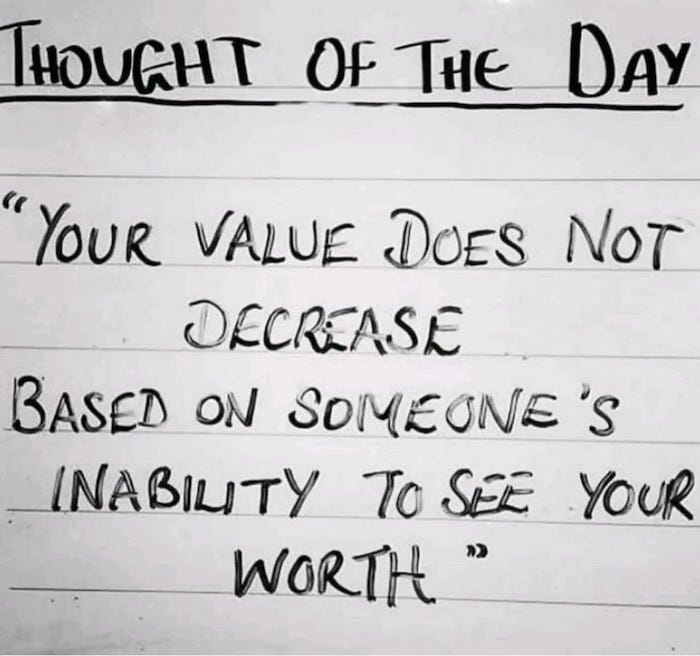 THOUGHT OF THE DAY
"YOUR VALUE DOES NOT
DECREASE
BASED ON SOMEONE'S
INABILITY TO SEE YOUR
WORTH."